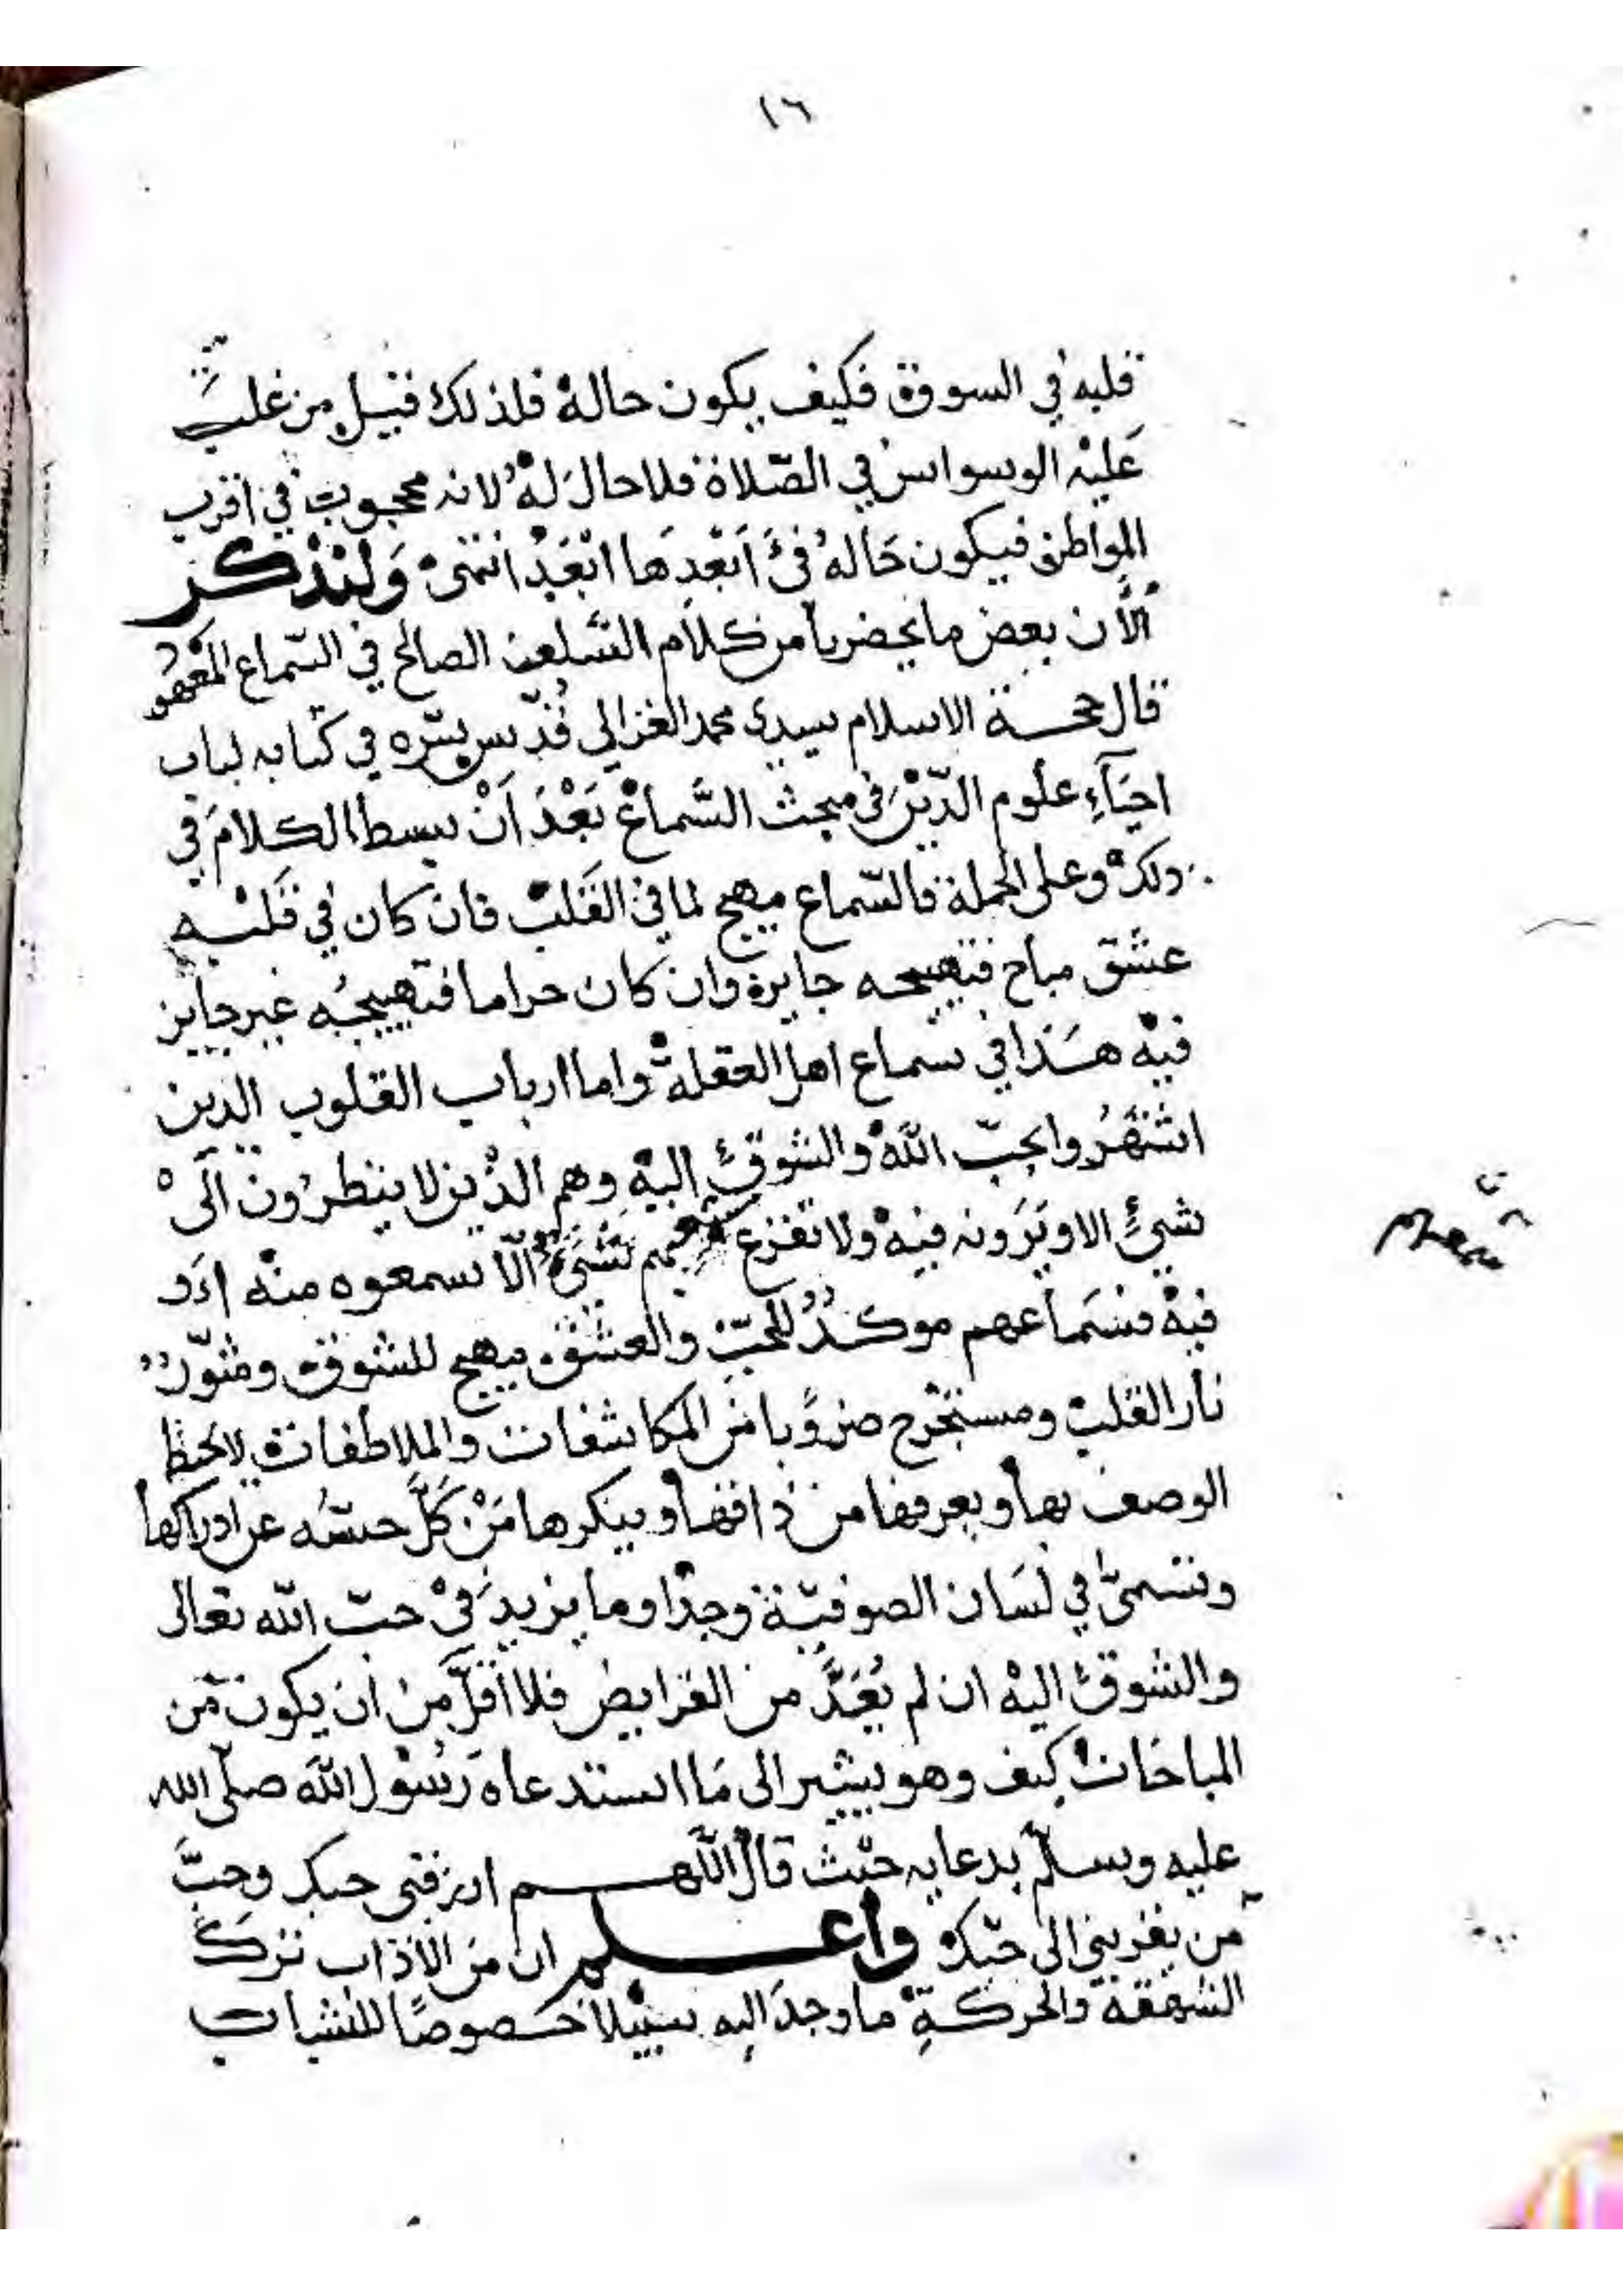 ١٦
قلبه في السوق فكيف يكون حاله فلذلك قيل من غلب
عَليْه الوسواس في الصّلاة فلا حالَ لهُ لانه محجوب في اقرب
المواطن فيكون حَالهُ فىَ اَبْعَدِهَا ابْعَدْ انتهىْ وَلنذْكر
اَلآن بعض ما يحضرنا من كلام السّلف الصالح في السّماع
قال حجة الاسلام سيدى محمد الغزالي قُدّس سرّه في كتابه لباب
احيَآءِ علوم الدّيْن فى مبحث السَّماعْ بَعْدَ اَنْ بسط الكلامَ في
ذلكْ وعلى الجملة فالسّماع مهيج لما في القَلبْ فان كان في قَلبْه
عشق مباح فتهييجه جايزة وان كان حراما فتهييجُه غير جايز
فيْه هَذا في سماع اهل الغفلةْ واما ارباب القلوب الذين
اشتَهَرُوا بحبّ اللهْ والشوقْ اليْه وهم الذْين لا ينظرُون آلىْ
شىءٍ الا ويَرَونه فيْه ولا تقزع سمعهم شَىْءٌ الّا سمعوه منْه اَو
فيْه فسَماعهم موكدُ للحبّ والعشق مهيج للشوق ومثوّر
نار القلبْ ومستخْرج ضروًبا من المكاشفات والملاطفات لا يحيط
الوصف بها ويعرفها من ذاقها وينكرها مَنْ كَلَّ حسّه عن ادراكها
وتسمىّ في لسَان الصوفيّة وجدًا وما يزيدَ فىْ حبّ الله تعالى
والشوقْ اليْه ان لم يُعَدَّ من الفرايض فلا اقلّ منْ ان يكون من
المباحَاتْ كيف وهو يشير الى مَا استدعاه رَسُوْل اللهَ صلّى الله
عليه وسلّم بدعايه حيْث قالْ اللهم ارزقنى حبك وحبَّ
من يقربني الى حبّكْ وأعلم ان مَن الآداب تركَ
الشهقة والحركةِ ما وجدَ اليه سبيْلا خصوصًا للشباب
سمعهم